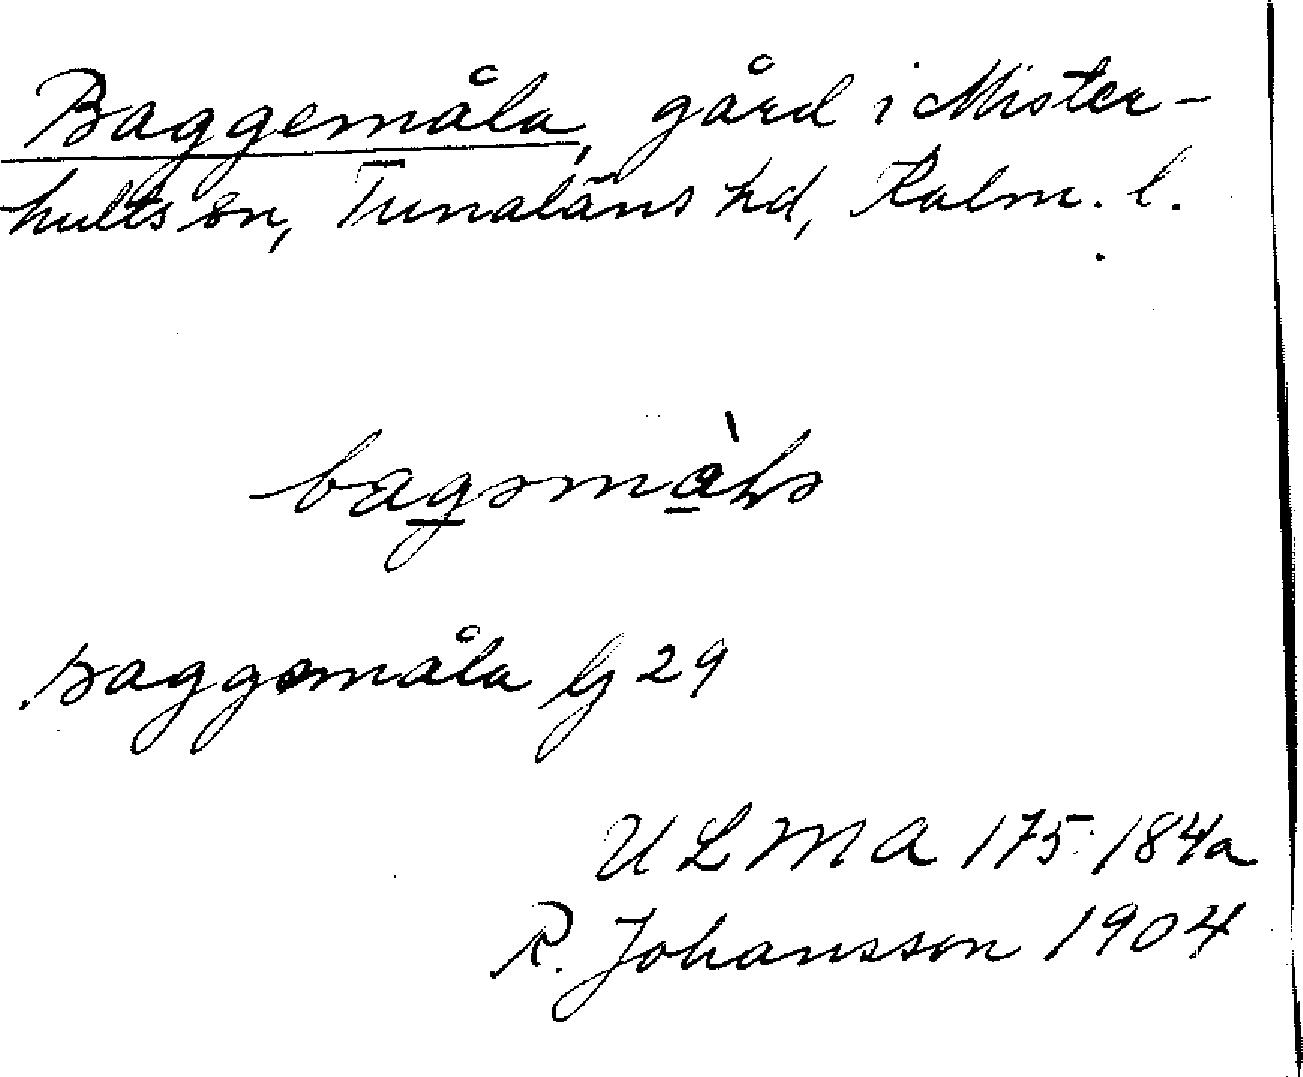 Baggemåla, gård i Mister-
hults sn, Tunaläns hd, Kalm. l.
bagsmàls
Baggemåla G 29
ULMA 175:184a
R. Johansson 1904